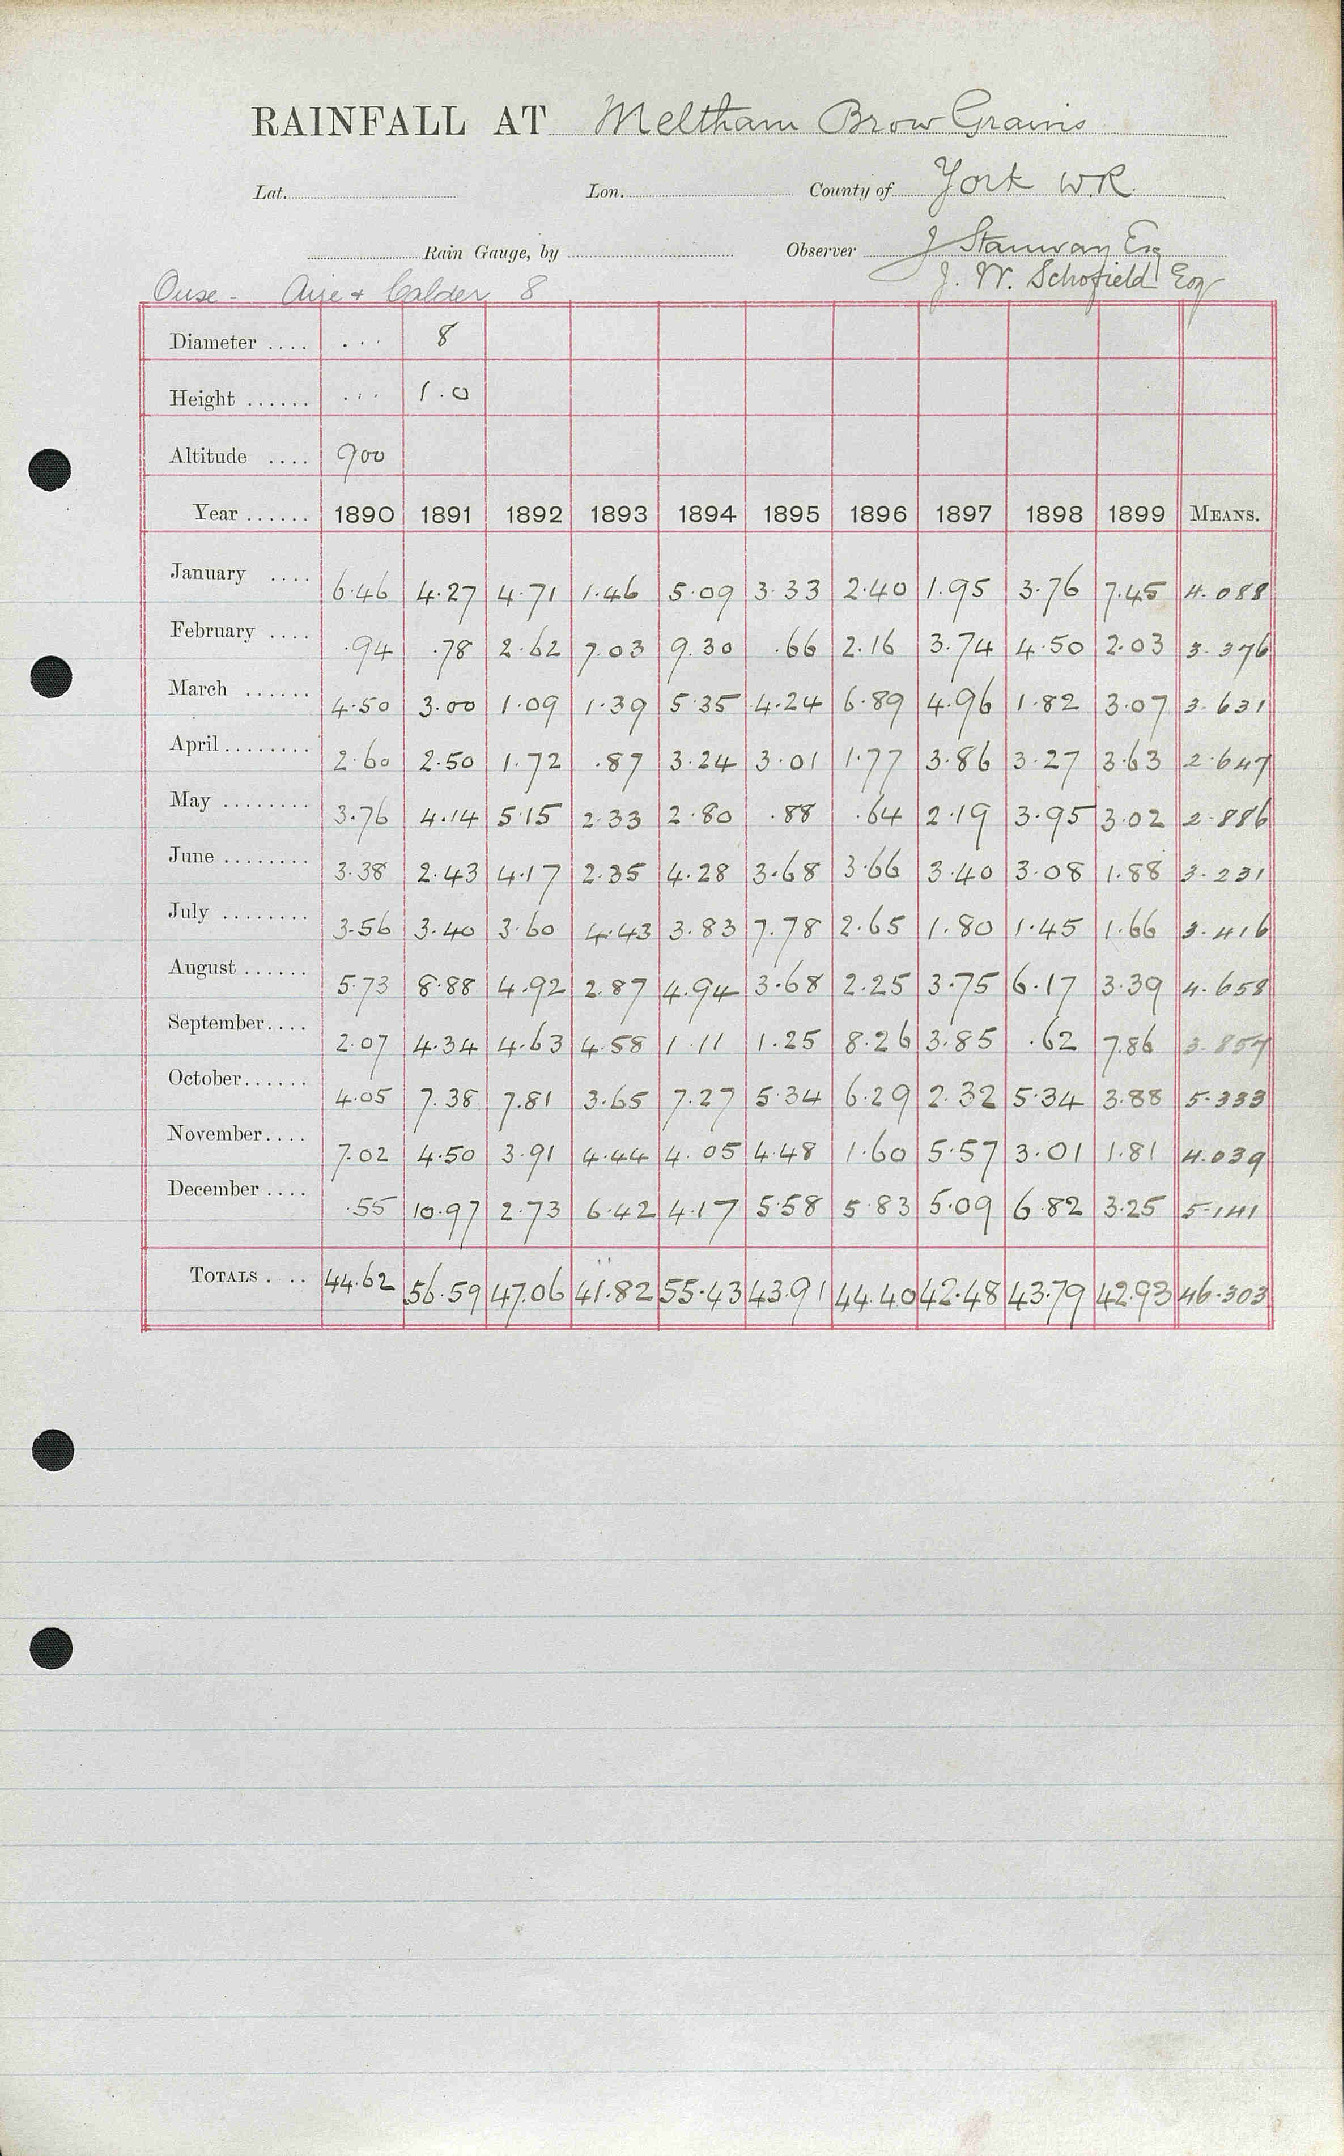 RAINFALL AT Meltham Brow Grains
Lat. Lon. County of York W.R
Rain Gauge, by Observer J Stanway Esq
J. W. Schofield Esq
Ouse - Aire + Calder 8
Diameter .... ... 8
Height ...... ... 1.0
Altitude .... 900
Year ...... 1890 1891 1892 1893 1894 1895 1896 1897 1898 1899 MEANS.
January .... 6.46 4.27 4.71 1.46 5.09 3.33 2.40 1.95 3.76 7.45 4.088
February .... .94 .78 2.62 7.03 9.30 .66 2.16 3.74 4.50 2.03 3.376
March ...... 4.50 3.00 1.09 1.39 5.35 4.24 6.89 4.96 1.82 3.07 3.631
April ........ 2.60 2.50 1.72 .87 3.24 3.01 1.77 3.86 3.27 3.63 2.647
May ........ 3.76 4.14 5.15 2.33 2.80 .88 .64 2.19 3.95 3.02 2.886
June ........ 3.38 2.43 4.17 2.35 4.28 3.68 3.66 3.40 3.08 1.88 3.231
July ........ 3.56 3.40 3.60 4.43 3.83 7.78 2.65 1.80 1.45 1.66 3.416
August ...... 5.73 8.88 4.92 2.87 4.94 3.68 2.25 3.75 6.17 3.39 4.658
September.... 2.07 4.34 4.63 4.58 1.11 1.25 8.26 3.85 .62 7.86 3.857
October...... 4.05 7.38 7.81 3.65 7.27 5.34 6.29 2.32 5.34 3.88 5.333
November.... 7.02 4.50 3.91 4.44 4.05 4.48 1.60 5.57 3.01 1.81 4.039
December .... .55 10.97 2.73 6.42 4.17 5.58 5.83 5.09 6.82 3.25 5.141
TOTALS . .. 44.62 56.59 47.06 41.82 55.43 43.91 44.40 42.48 43.79 42.93 46.303